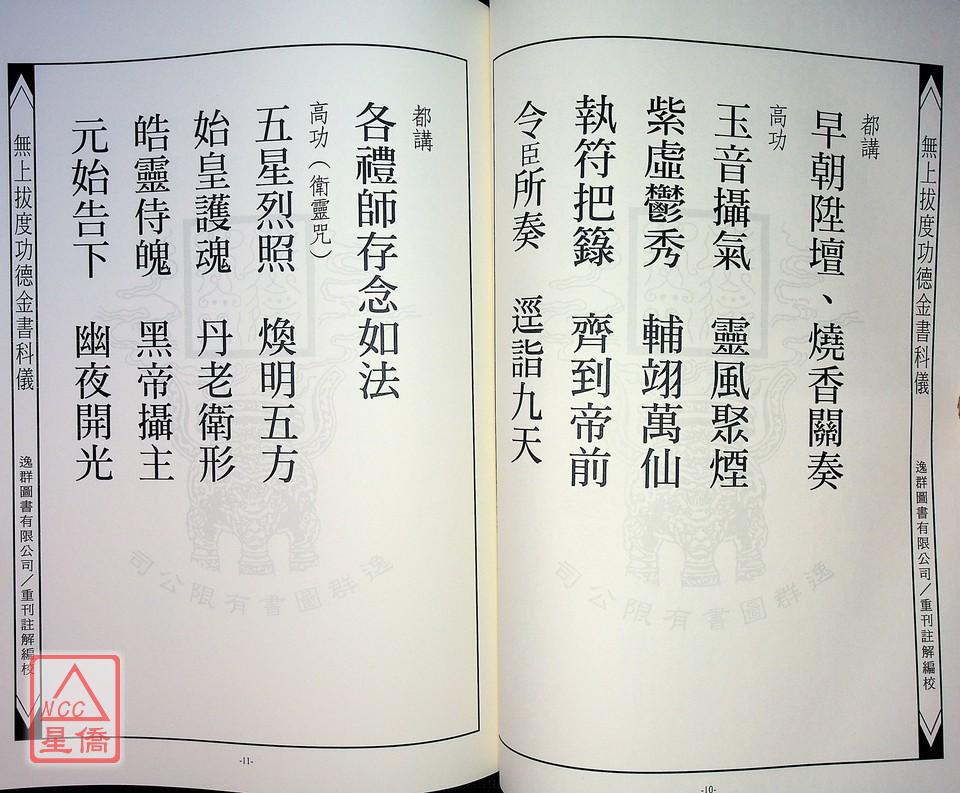 無上拔度功德金書科儀
逸群圖書有限公司/重刊註解編校
都講
早朝陞壇、燒香關奏
高功
玉音攝氣 靈風聚煙
紫虛鬱秀 輔翊萬仙
執符把籙 齊到帝前
令臣所奏 逕詣九天
逸群圖書有限公司
-10-
都講
各禮師存念如法
高功(衛靈咒)
五星烈照 煥明五方
始皇護魂 丹老衛形
皓靈侍魄 黑帝攝主
元始告下 幽夜開光
逸群圖書有限公司
無上拔度功德金書科儀
逸群圖書有限公司/重刊註解編校
-11-
NCC
星僑